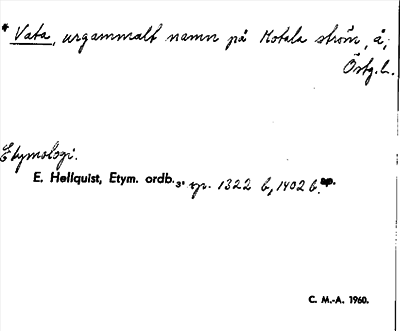 * Vata, urgammalt namn på Motala ström, å,
Östg.l.
Etymologi.
E. Hellquist, Etym. ordb.3, sp. 1322 b, 1402 b.
C. M.-A. 1960.